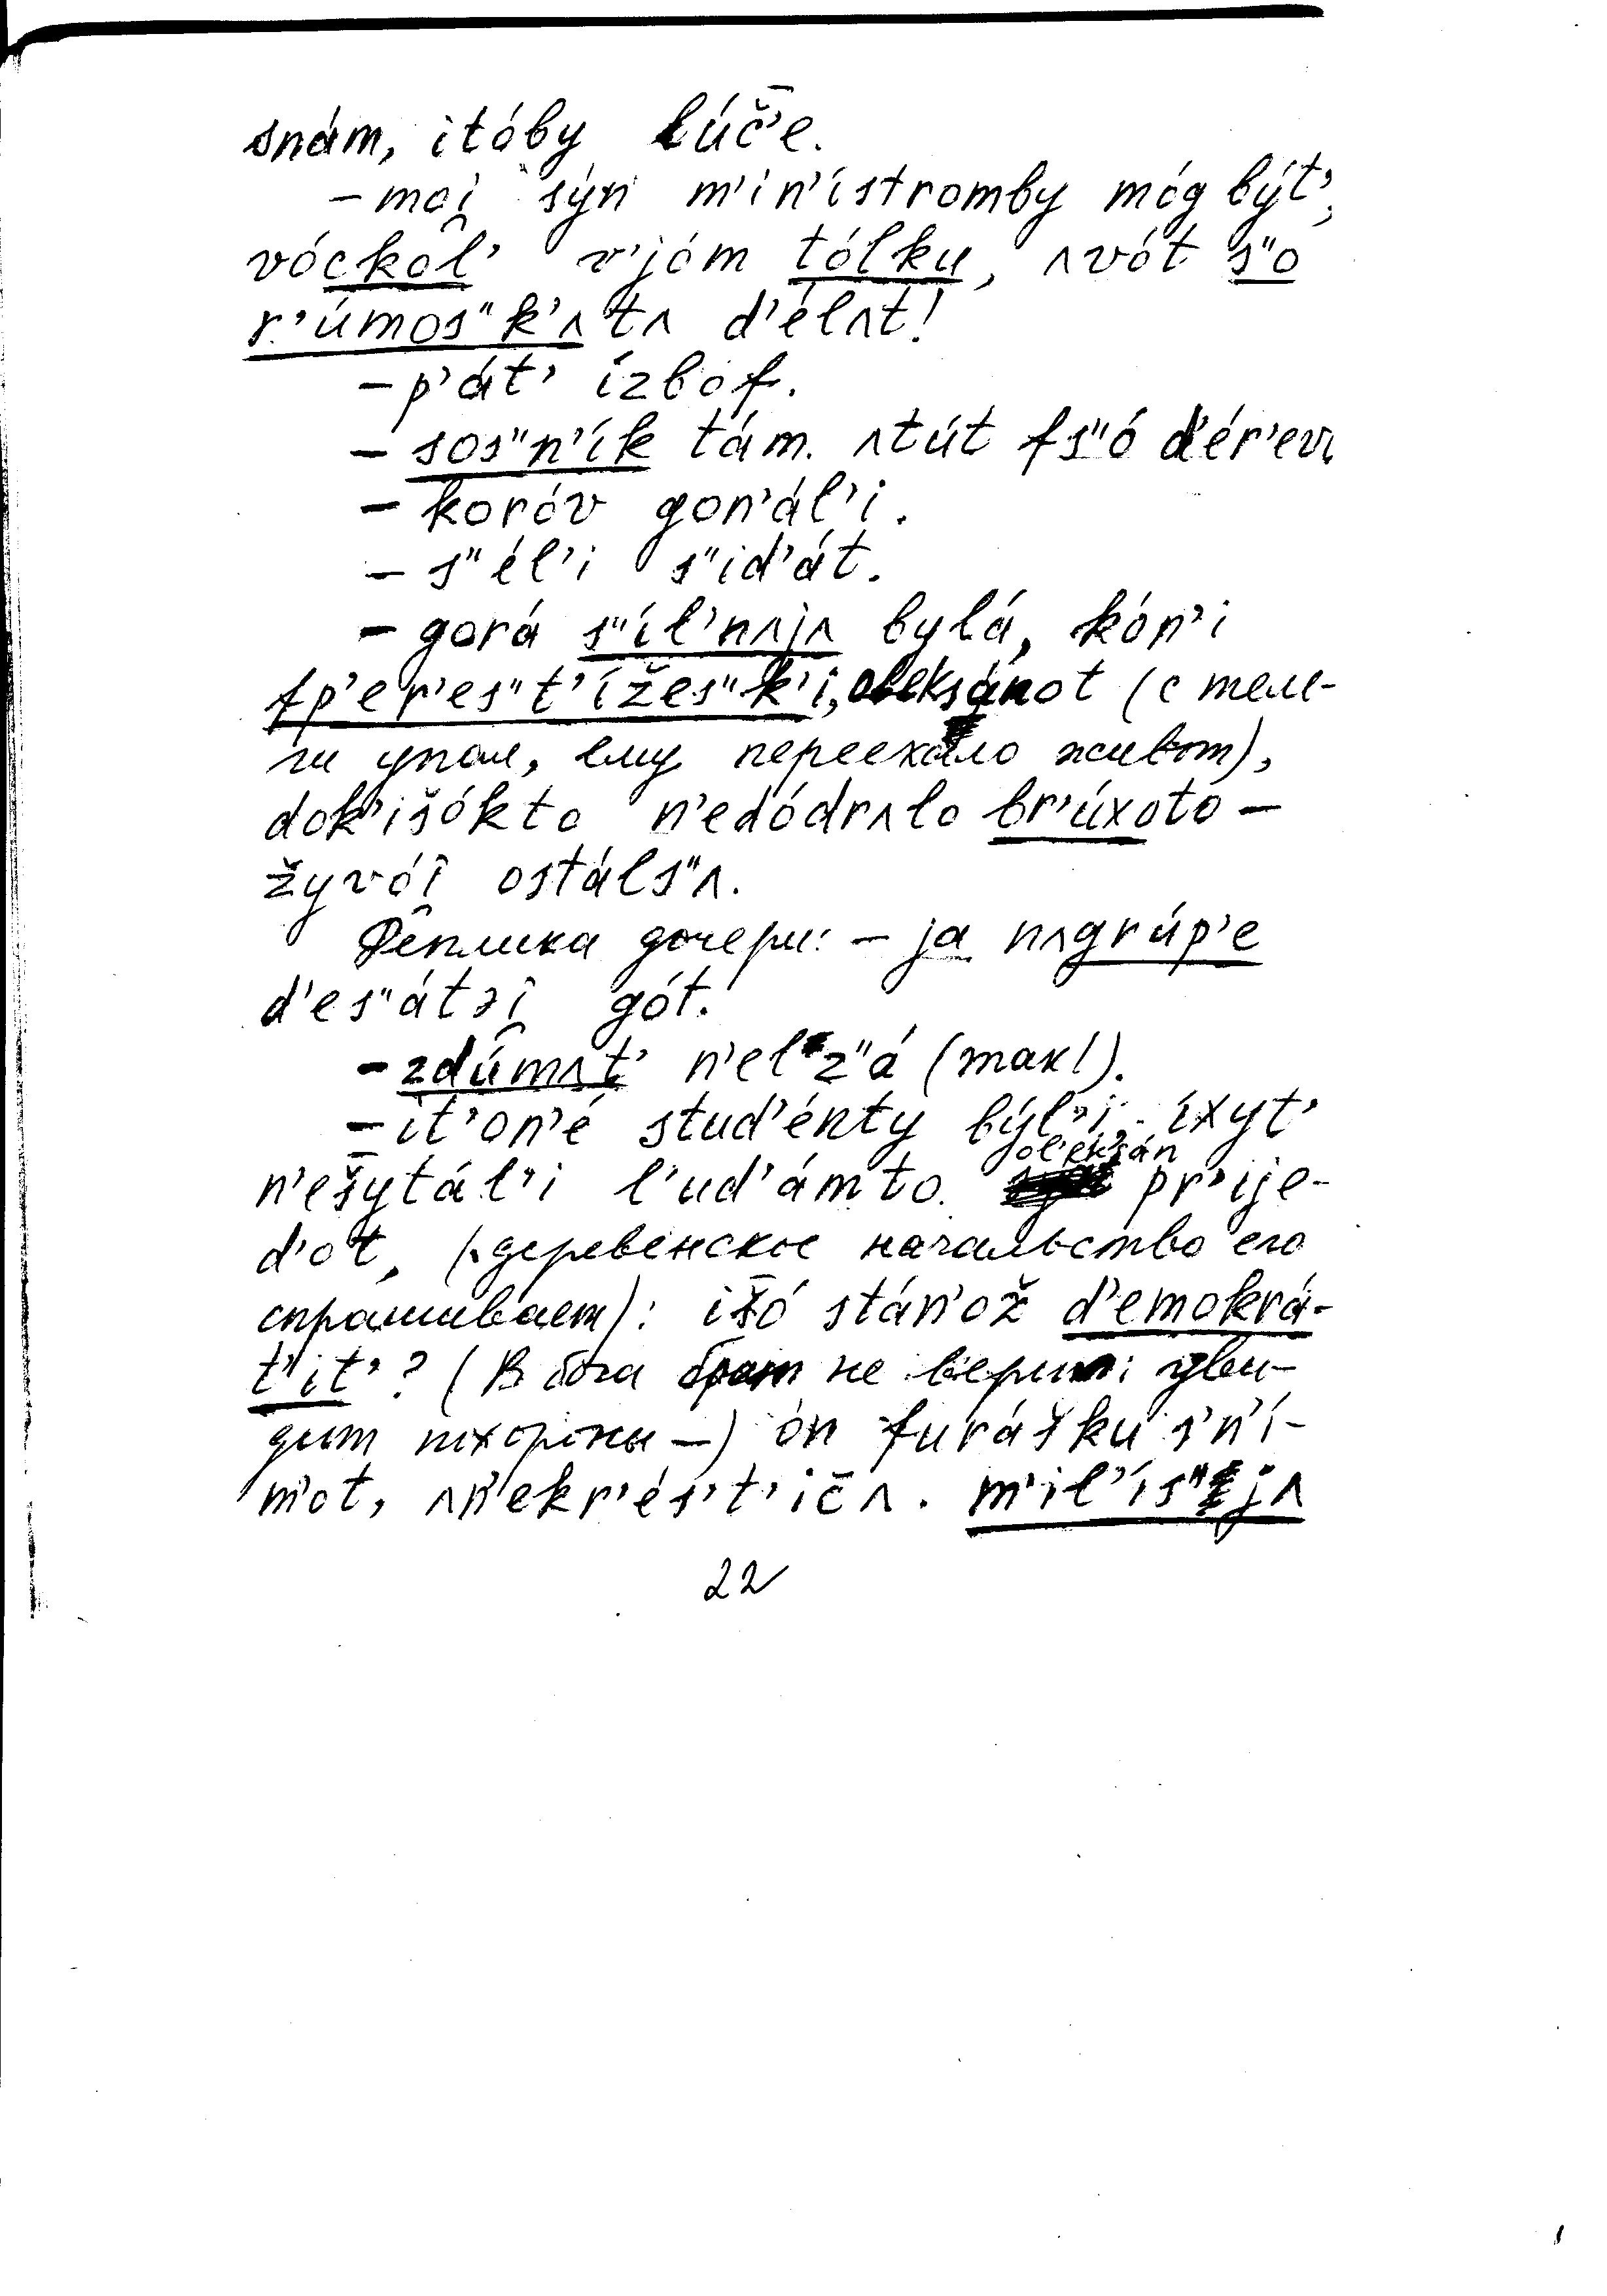 snám, itóby lúč̄'e.
– moi̯ sýn m'in'ístromby móg být',
vóckol' v'jóm tólku, ʌvót s"o
r'úmos"k'ʌtʌ d'élʌt!
– p'át' ízbof.
– sos"n'ík tám. ʌtút fs"ó d'ér'evʌ
– koróv gon'ál'i.
– s"él'i s"id'át.
– gorá s"íl'nʌjʌ bylá, kón'i
fp'er'es"t'ížes"k'i, oleksánot (с теле-
ги упал, ему переехало живот),
dok'išókto n'edódrʌlo br'úxoto –
žyvói̯ ostáls"ʌ.
Реплика дочери: – ja nʌgrúp'e
d'es"átəi̯ gót.
– zdúmʌt' n'el'z"á (так!).
– it'on'é stud'énty býl'i, íxyt'
n'ešytál'i l'ud'ámto. ol'eksán pr'ije-
d'ot, (деревенское начальство его
спрашивает): iš̄ó stán'ož d'emokrá-
t'it'? (В бога брат не верит: уви-
дит похороны –) ón furášku s'n'í-
m'ot, ʌn'ekr'és't'ič̄ʌ. m'il'ís"jʌ
22